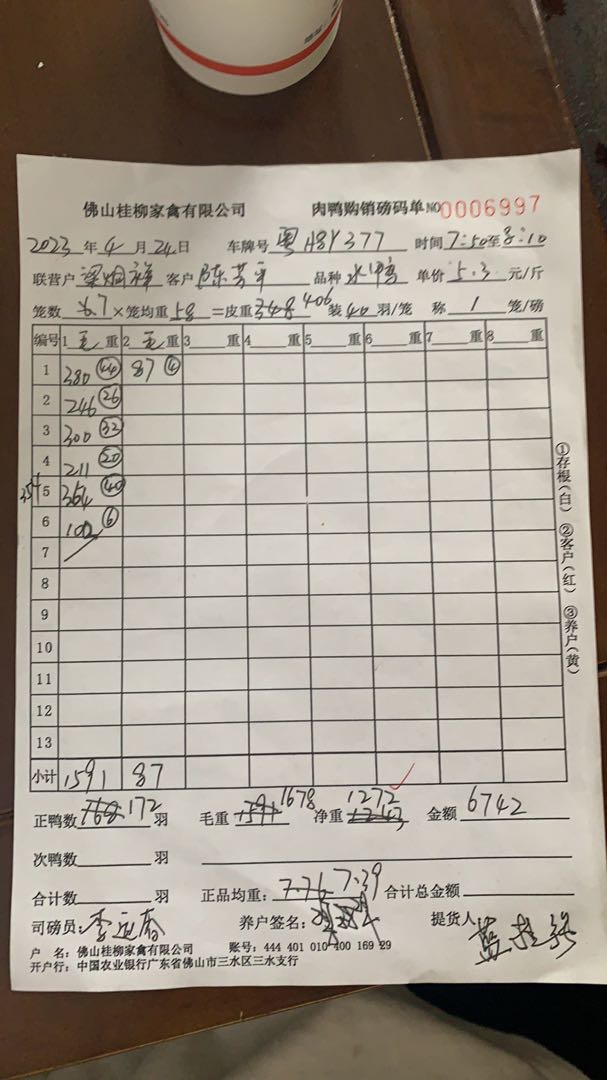 佛山桂柳家禽有限公司 肉鸭购销磅码单 NO 0006997
2023 年 4 月 24 日 车牌号 粤A8Y377 时间 7:50 至 8:10
联营户 梁烟祥 客户 陈芳平 品种 水鸭 单价 5.3 元/斤
笼数 6.7 ×笼均重 58 =皮重 348 406 装 40 羽/笼 称 1 笼/磅
编号 1 毛 重 2 毛 重 3 重 4 重 5 重 6 重 7 重 8 重
1 380 44 87 4
2 246 26
3 300 32
4 211 20
354 5 364 40
6 100 6
7
8
9
10
11
12
13
小计 1591 87
正鸭数 172 羽 毛重 1591 1678 净重 1243 1272 金额 6742
次鸭数 羽
合计数 羽 正品均重: 7.76 7.39 合计总金额
司磅员: 养户签名: 提货人
户 名: 佛山桂柳家禽有限公司 账号: 444 401 010 400 169 29
开户行: 中国农业银行广东省佛山市三水区三水支行
①存根(白) ②客户(红) ③养户(黄)